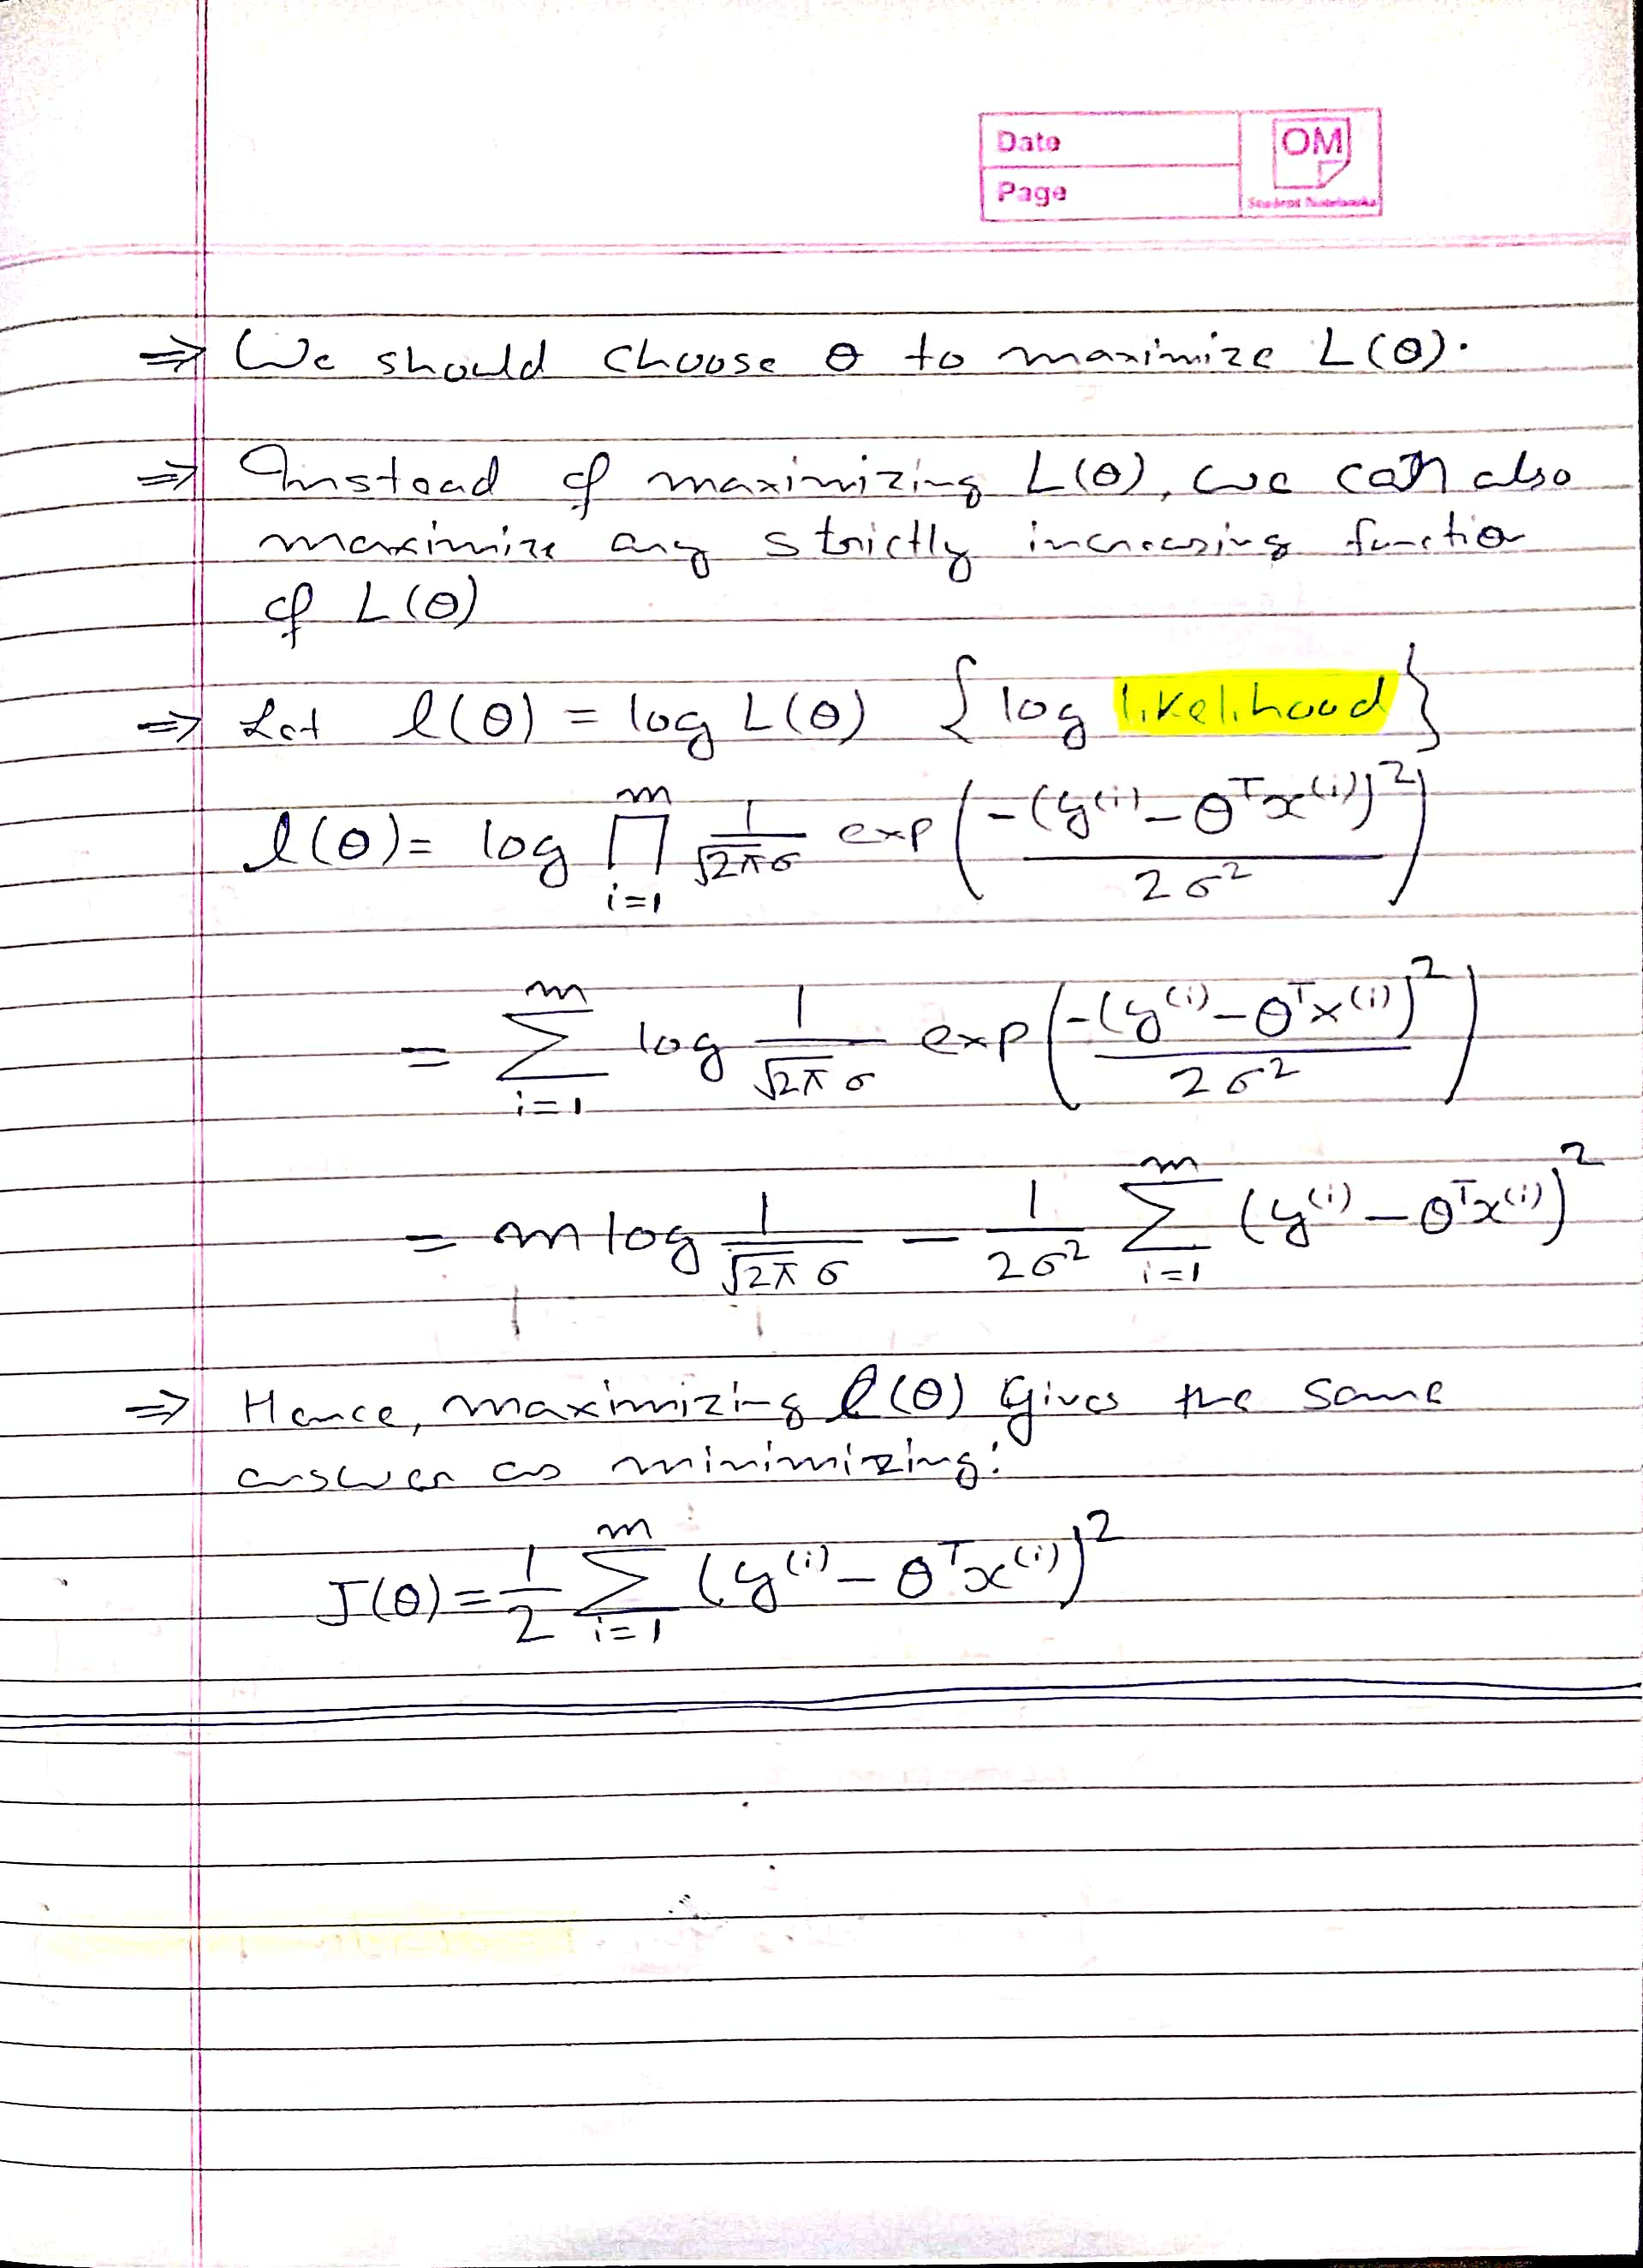 Date
OM
Page
Student Notebooks
⇒ We should choose θ to maximize L(θ).
⇒ Instead of maximizing L(θ), we can also
maximize any strictly increasing function
of L(θ)
⇒ Let l(θ) = log L(θ) {log likelihood}
l(θ) = log ∏_{i=1}^{m} 1/(√2π σ) exp(-(y^(i) - θ^T x^(i))^2 / 2σ^2)
= ∑_{i=1}^{m} log 1/(√2π σ) exp(-(y^(i) - θ^T x^(i))^2 / 2σ^2)
= m log 1/(√2π σ) - 1/(2σ^2) ∑_{i=1}^{m} (y^(i) - θ^T x^(i))^2
⇒ Hence, maximizing l(θ) gives the same
answer as minimizing:
J(θ) = 1/2 ∑_{i=1}^{m} (y^(i) - θ^T x^(i))^2